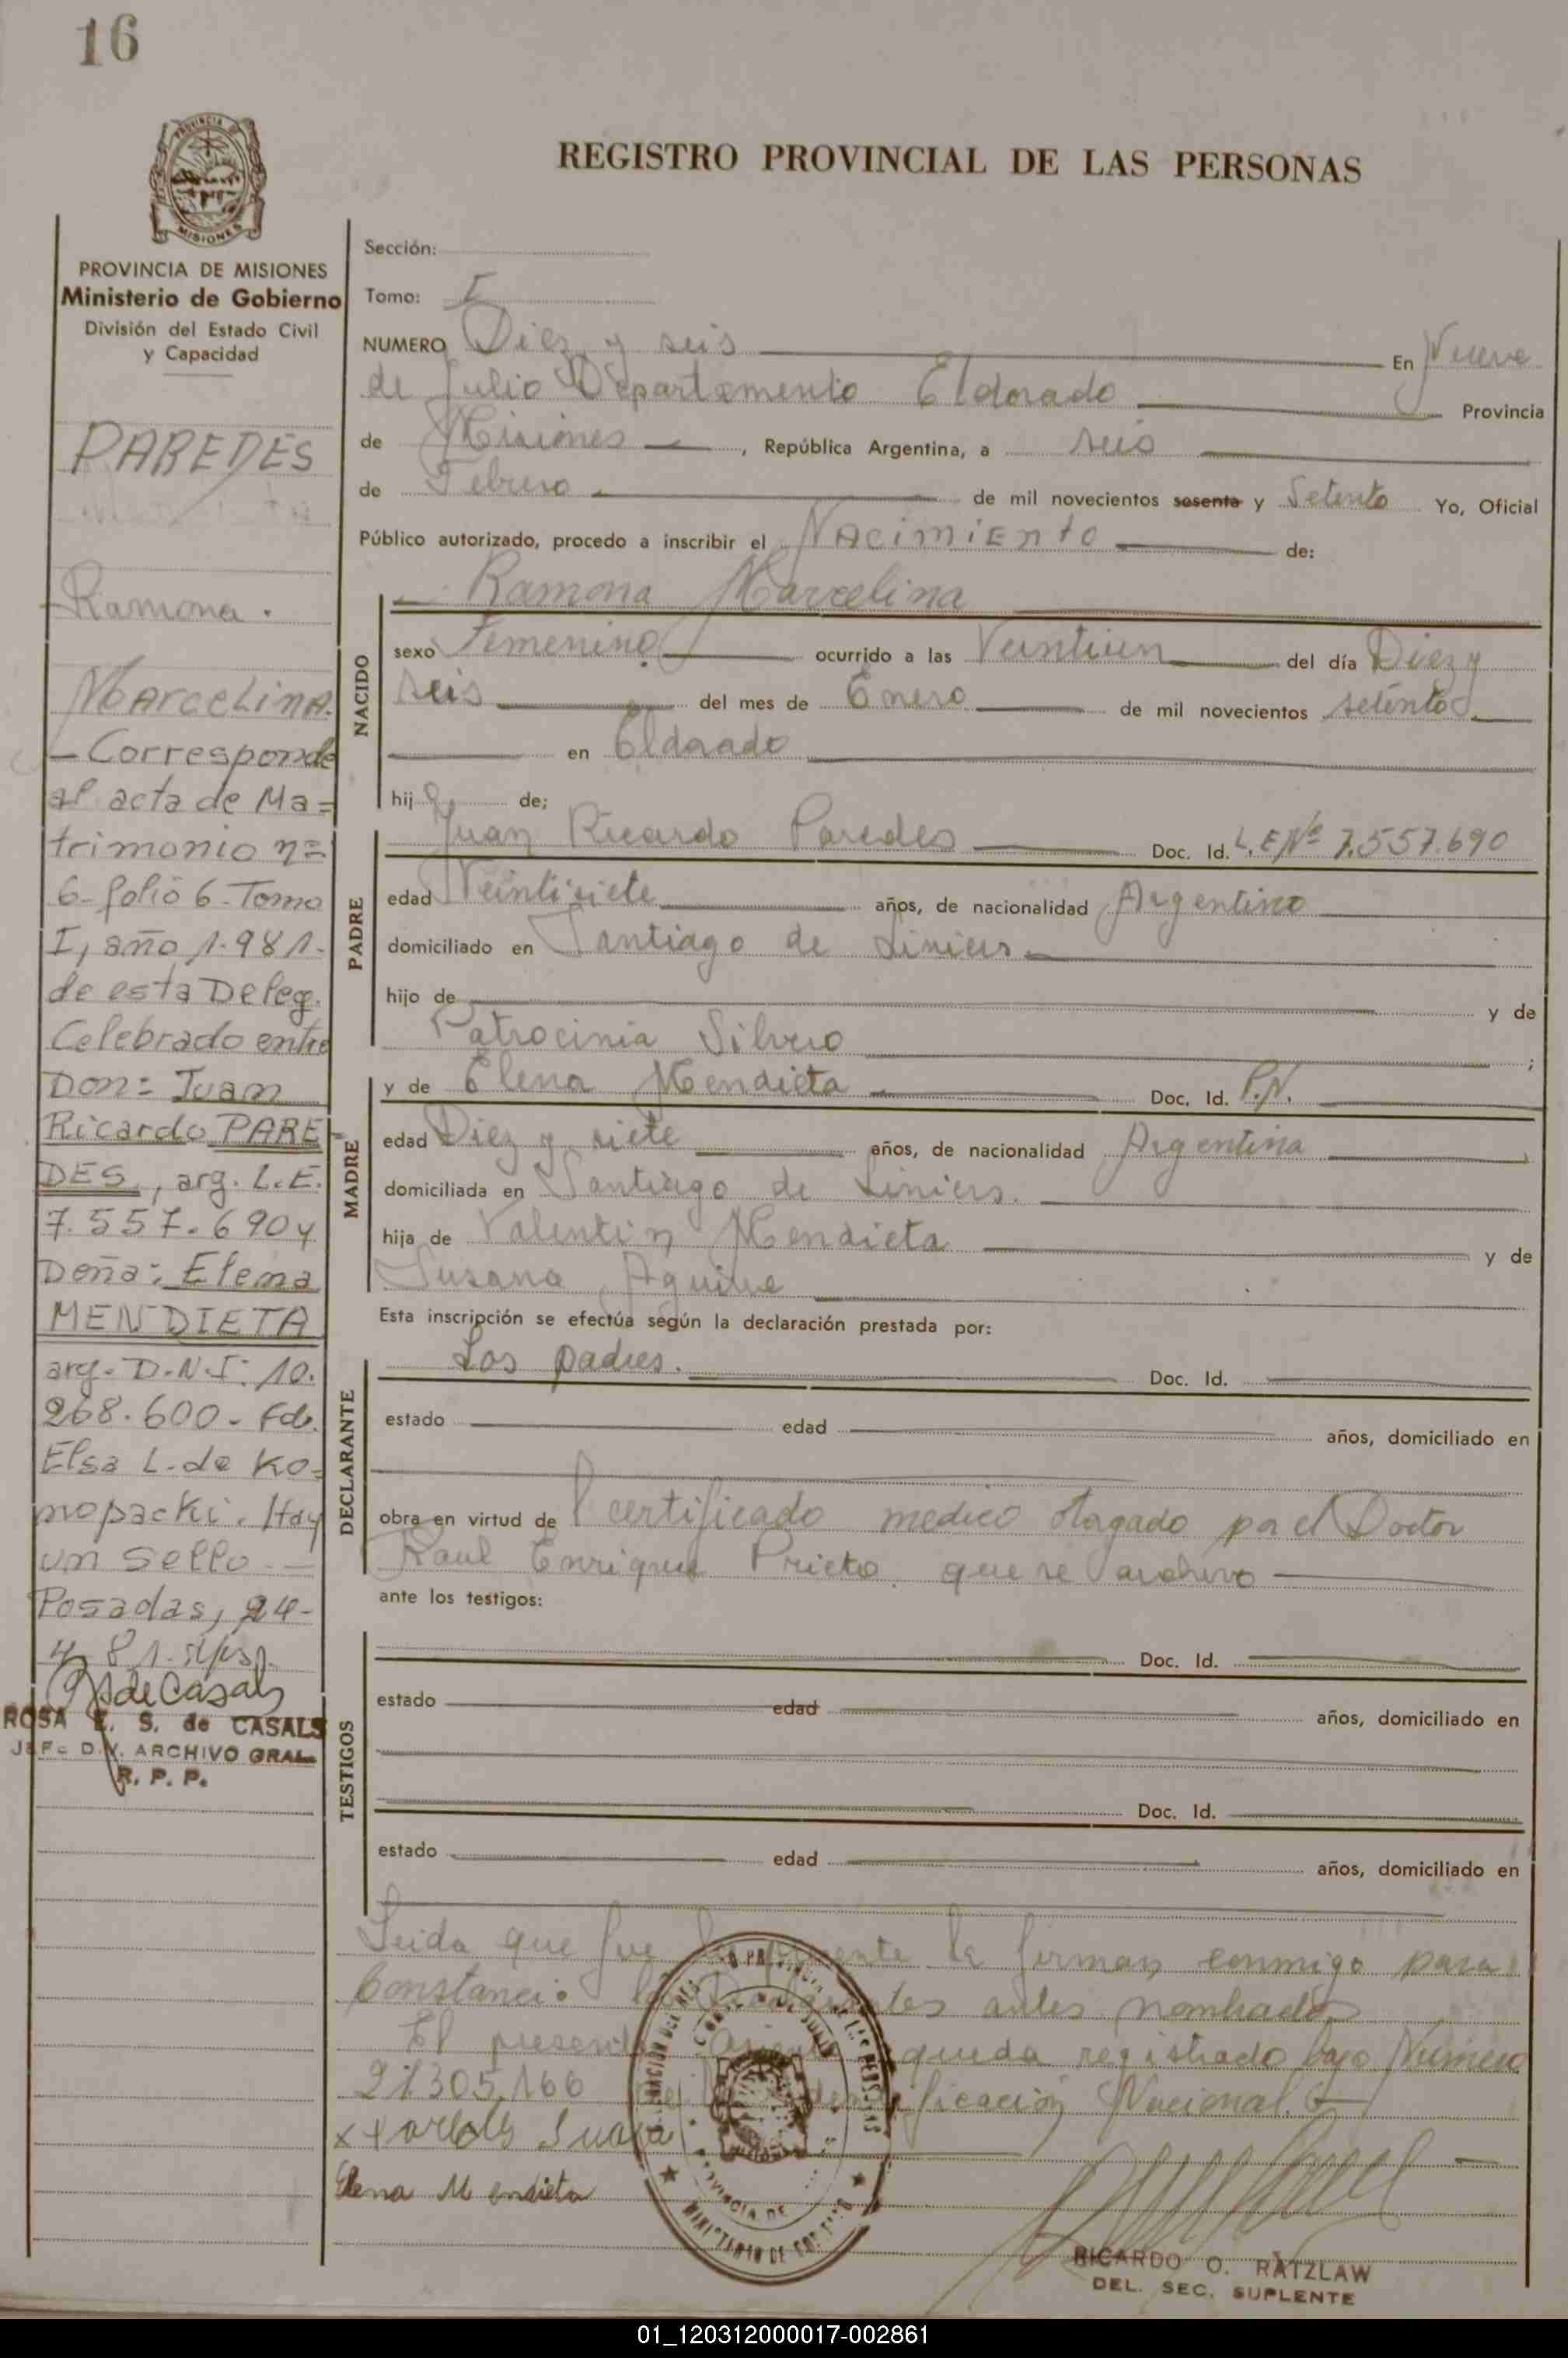 16
REGISTRO PROVINCIAL DE LAS PERSONAS
MISIONES
PROVINCIA DE MISIONES
Ministerio de Gobierno
División del Estado Civil
y Capacidad
PAREDES
Ramona.
Marcelina.
- Corresponde
al acta de Ma=
trimonio n=
6- folio 6- Tomo
I, año 1.981.
de esta Deleg.
Celebrado entre
Don= Juan
Ricardo PARE-
DES, arg. L.E.
7.557.690 y
Doña: Elena
MENDIETA
arg. D.N.I: 10.
268.600- Fdo.
Elsa L. de Ko=
nopacki. Hay
un sello. —
Posadas, 24-
4- 81.
de Casals
ROSA E. S. de CASALS
JEF. DIV. ARCHIVO GRAL
R. P. P.
Sección:
Tomo: I
NUMERO Diez y seis En Nueve
de Julio Departamento Eldorado Provincia
de Misiones, República Argentina, a seis
de Febrero de mil novecientos sesenta y Setenta Yo, Oficial
Público autorizado, procedo a inscribir el Nacimiento de:
Ramona Marcelina
NACIDO
sexo Femenino ocurrido a las Veintiun del día Diez y
seis del mes de Enero de mil novecientos setenta
en Eldorado
hija de;
Juan Ricardo Paredes Doc. Id. L.E Nº 7.557.690
PADRE
edad Veintisiete años, de nacionalidad Argentino
domiciliado en Santiago de Liniers
hijo de y de
Patrocinia Silvero ;
y de Elena Mendieta Doc. Id. P.N.
MADRE
edad Diez y siete años, de nacionalidad Argentina
domiciliada en Santiago de Liniers.
hija de Valentin Mendieta y de
Susana Aguirre
Esta inscripción se efectúa según la declaración prestada por:
Los padres. Doc. Id.
DECLARANTE
estado edad años, domiciliado en
obra en virtud de certificado medico otorgado por el Doctor
Raul Enrique Prieto que se archivo
ante los testigos:
Doc. Id.
TESTIGOS
estado edad años, domiciliado en
Doc. Id.
estado edad años, domiciliado en
Leida que fue la presente la firman conmigo para
Constancia los Declarantes antes nombrados
El presente queda registrado bajo Número
21305.166 Identificación Nacional.
Elena Mendieta
RICARDO O. RATZLAW
DEL. SEC. SUPLENTE
01_120312000017-002861